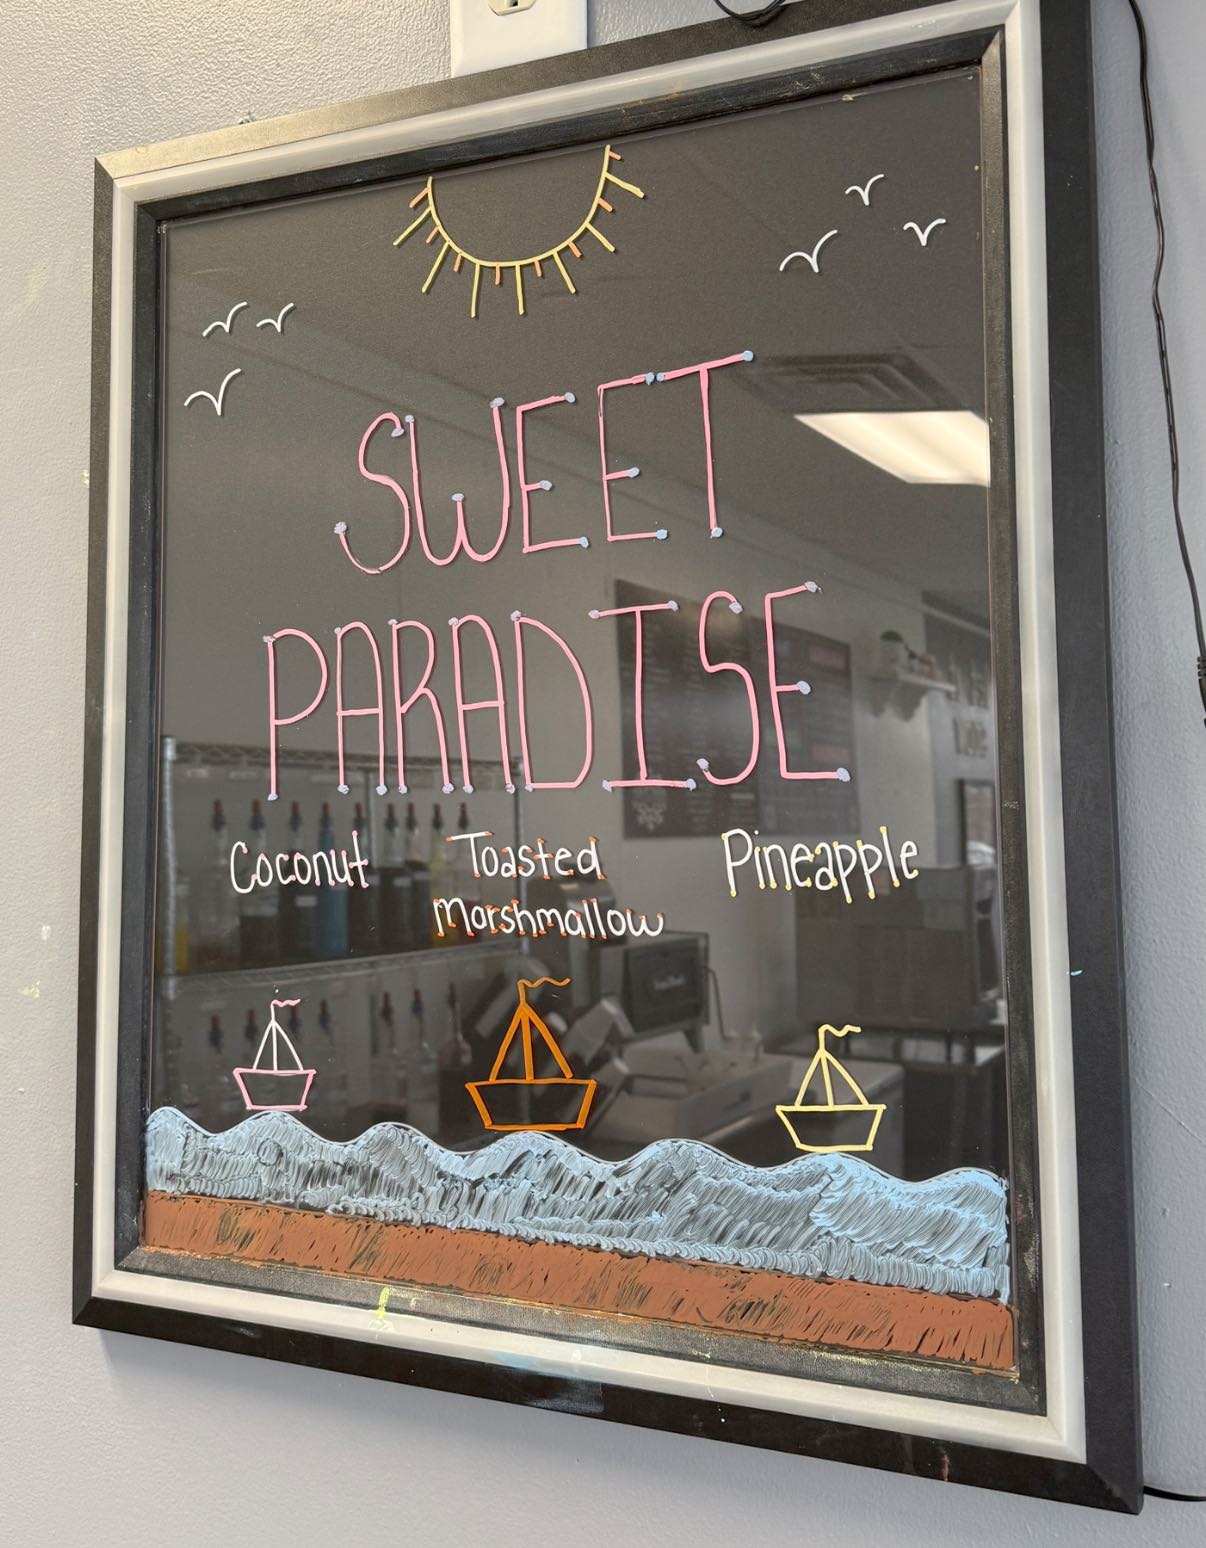 SWEET
PARADISE
Coconut Toasted Pineapple
Marshmallow